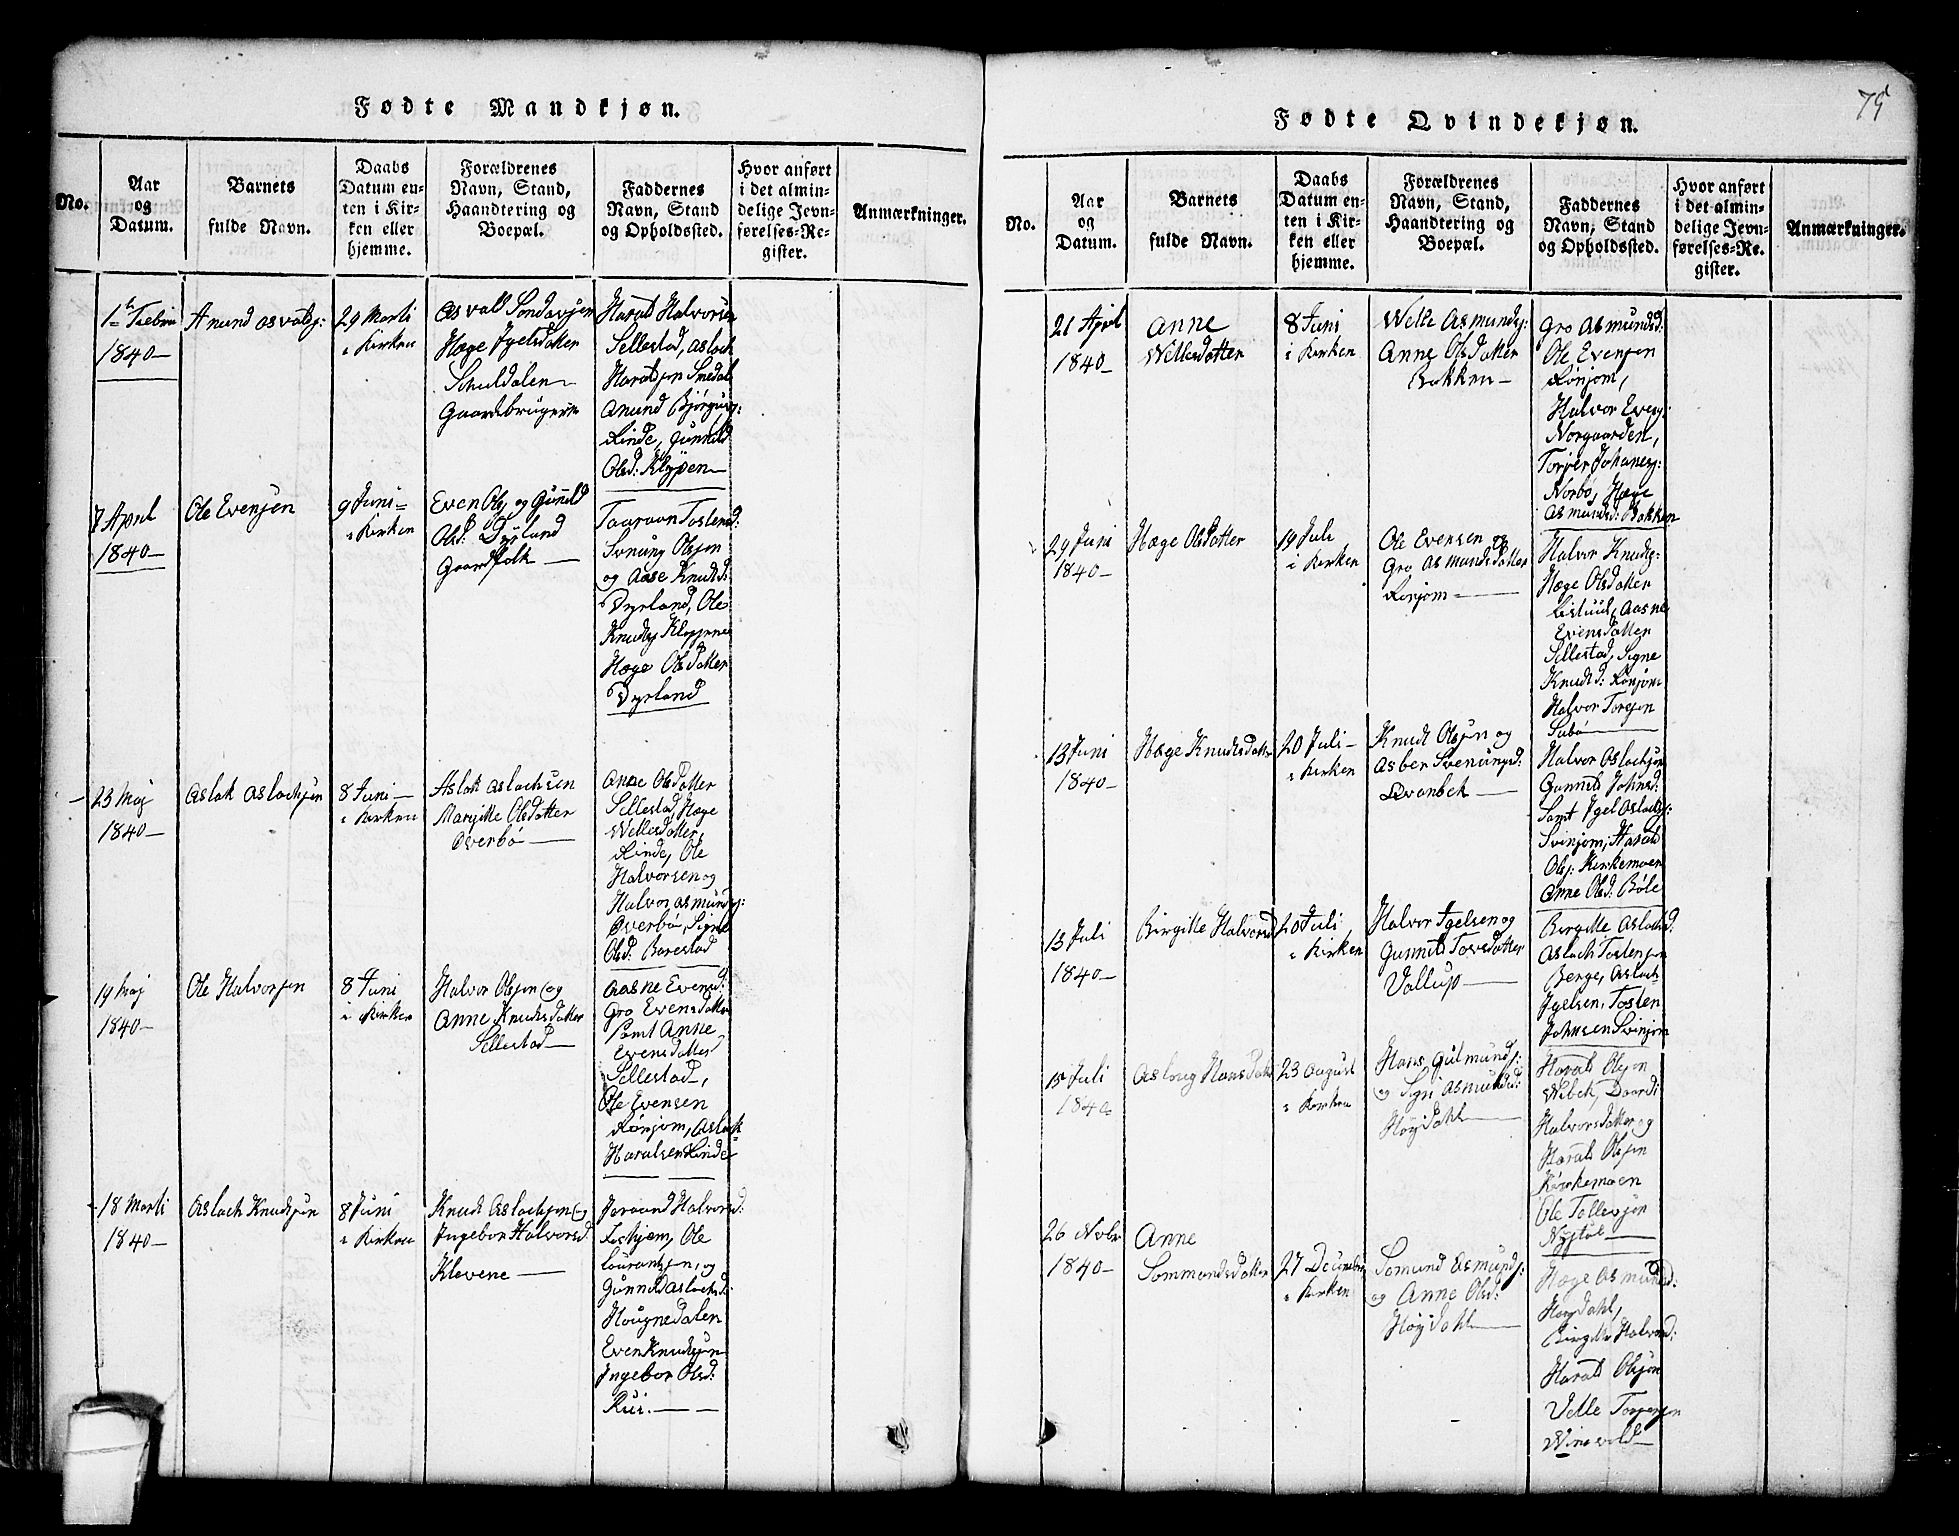 Fødte Mandkjøn.
No.
Aar
og
Datum.
Barnets
fulde Navn.
Daabs
Datum en-
ten i Kir-
ken eller
hjemme.
Forældrenes
Navn, Stand,
Haandtering og
Boepæl.
Faddernes
Navn, Stand
og Opholdssted.
Hvor anført
i det almin-
delige Jevn-
førelses-Re-
gister.
Anmærkninger.
1840
Anund Asvalds:
29 Marti
i Kirken
Asvald Sondresen
Hæge Igelsdatter
Schuldalen
Gaardebrugere
Harald Halvorsen
Sellestad, Aslack
Haraldsen Smedal
Anund Bjørguvs:
Rinde, Gunnild
Olsd: Klypen
7 April
1840
Ole Evensen
9 Juni
i Kirken
Even Ols: og Gunild
Olsd: Dyrland
Gaardfolk
Taaraan Tostensd:
Svenung Olsen
og Aase Knudsd:
Dyrland, Ole
Knuds: Klypene
Hæge Olsdatter
Dyrland
23 Maj
1840
Aslak Aslachsen
8 Juni
i Kirken
Aslak Aslachsen
Margitte Olsdatter
Overbø
Anne Olsdatter
Sellestad, Hæge
Wellesdatter,
Rinde, Ole
Halvorsen og
Halvor Asmunds:
Overbø, Signe
Olsd: Barestad
19 Maj
1840
Ole Halvorsen
8 Juni
i Kirken
Halvor Olsen og
Anne Knudsdatter
Sellestad
Aasne Evensd:
Gro Evensdatter
samt Anne
Evensdatter
Sellestad,
Ole Evensen
Rønjom, Aslack
Haralsen Rinde
18 Marti
1840
Aslach Knudsen
8 Juni
i Kirken
Knud Aslachsen og
Ingebor Halvorsd:
Klevene
Joraand Halvorsd:
Leshjem, Ole
Laurantsen, og
Gunnild Aslachsd:
Hougnedalen
Even Knudsen
Ingebor Olsd:
Rui.
Fødte Qvindekjøn.
75
No.
Aar
og
Datum.
Barnets
fulde Navn.
Daabs
Datum en-
ten i Kir-
ken eller
hjemme.
Forældrenes
Navn, Stand,
Haandtering og
Boepæl.
Faddernes
Navn, Stand
og Opholdssted.
Hvor anført
i det almin-
delige Jevn-
førelses-Re-
gister.
Anmærkninger.
21 April
1840
Anne
Wellesdatter
8 Juni
i Kirken
Welle Asmunds:
Anne Olsdatter
Bakken
Gro Asmundsd:
Ole Evensen
Rønjom,
Halvor Evens:
Norgaarden,
Torjer Johanes:
Norbø, Hæge
Asmundsd: Bakken
29 Juni
1840
Hæge Olsdatter
19 Juli
i Kirken
Ole Evensen og
Gro Asmundsdatter
Rønjom
Halvor Knuds:
Hæge Olsdatter
Listuul, Aasne
Evensdatter
Sellestad, Signe
Knudsd: Rønjom
Halvor Torsen
Subø
13 Juni
1840
Hæge Knudsdatter
20 Juli
i Kirken
Knud Olsen og
Asber Svenungsd:
Qvanbek
Halvor Aslachsen
Gunnild Johnsd:
Samt Igel Aslachs:
Svinjom, Harald
Ols: Kirkemoen
Anne Olsd: Bøle
13 Juli
1840
Birgitte Halvorsd
20 Juli
i Kirken
Halvor Igelsen og
Gunnild Torsdatter
Vallup
Birgitte Aslachsd:
Aslach Tostensen
Berge, Aslach
Igelsen, Tosten
Johnsen Svinjom
15 Juli
1840
Aslaug Hansdatter
23 August
i Kirken
Hans Gulmunds:
og Signe Asmundsd:
Høydahl
Harald Olsen
Webek, Daardi
Halvorsdatter og
Harald Olsen
Kirkemoen
Ole Tollevsøn
Nystøl
26 Novbr
1840
Anne
Sommondsdatter
27 December
i Kirken
Somund Asmunds:
og Anne Olsd:
Høydahl
Hæge Asmundsd:
Høydahl,
Birgitte Halvorsd:
Harald Olsøn
Velle Torjersen